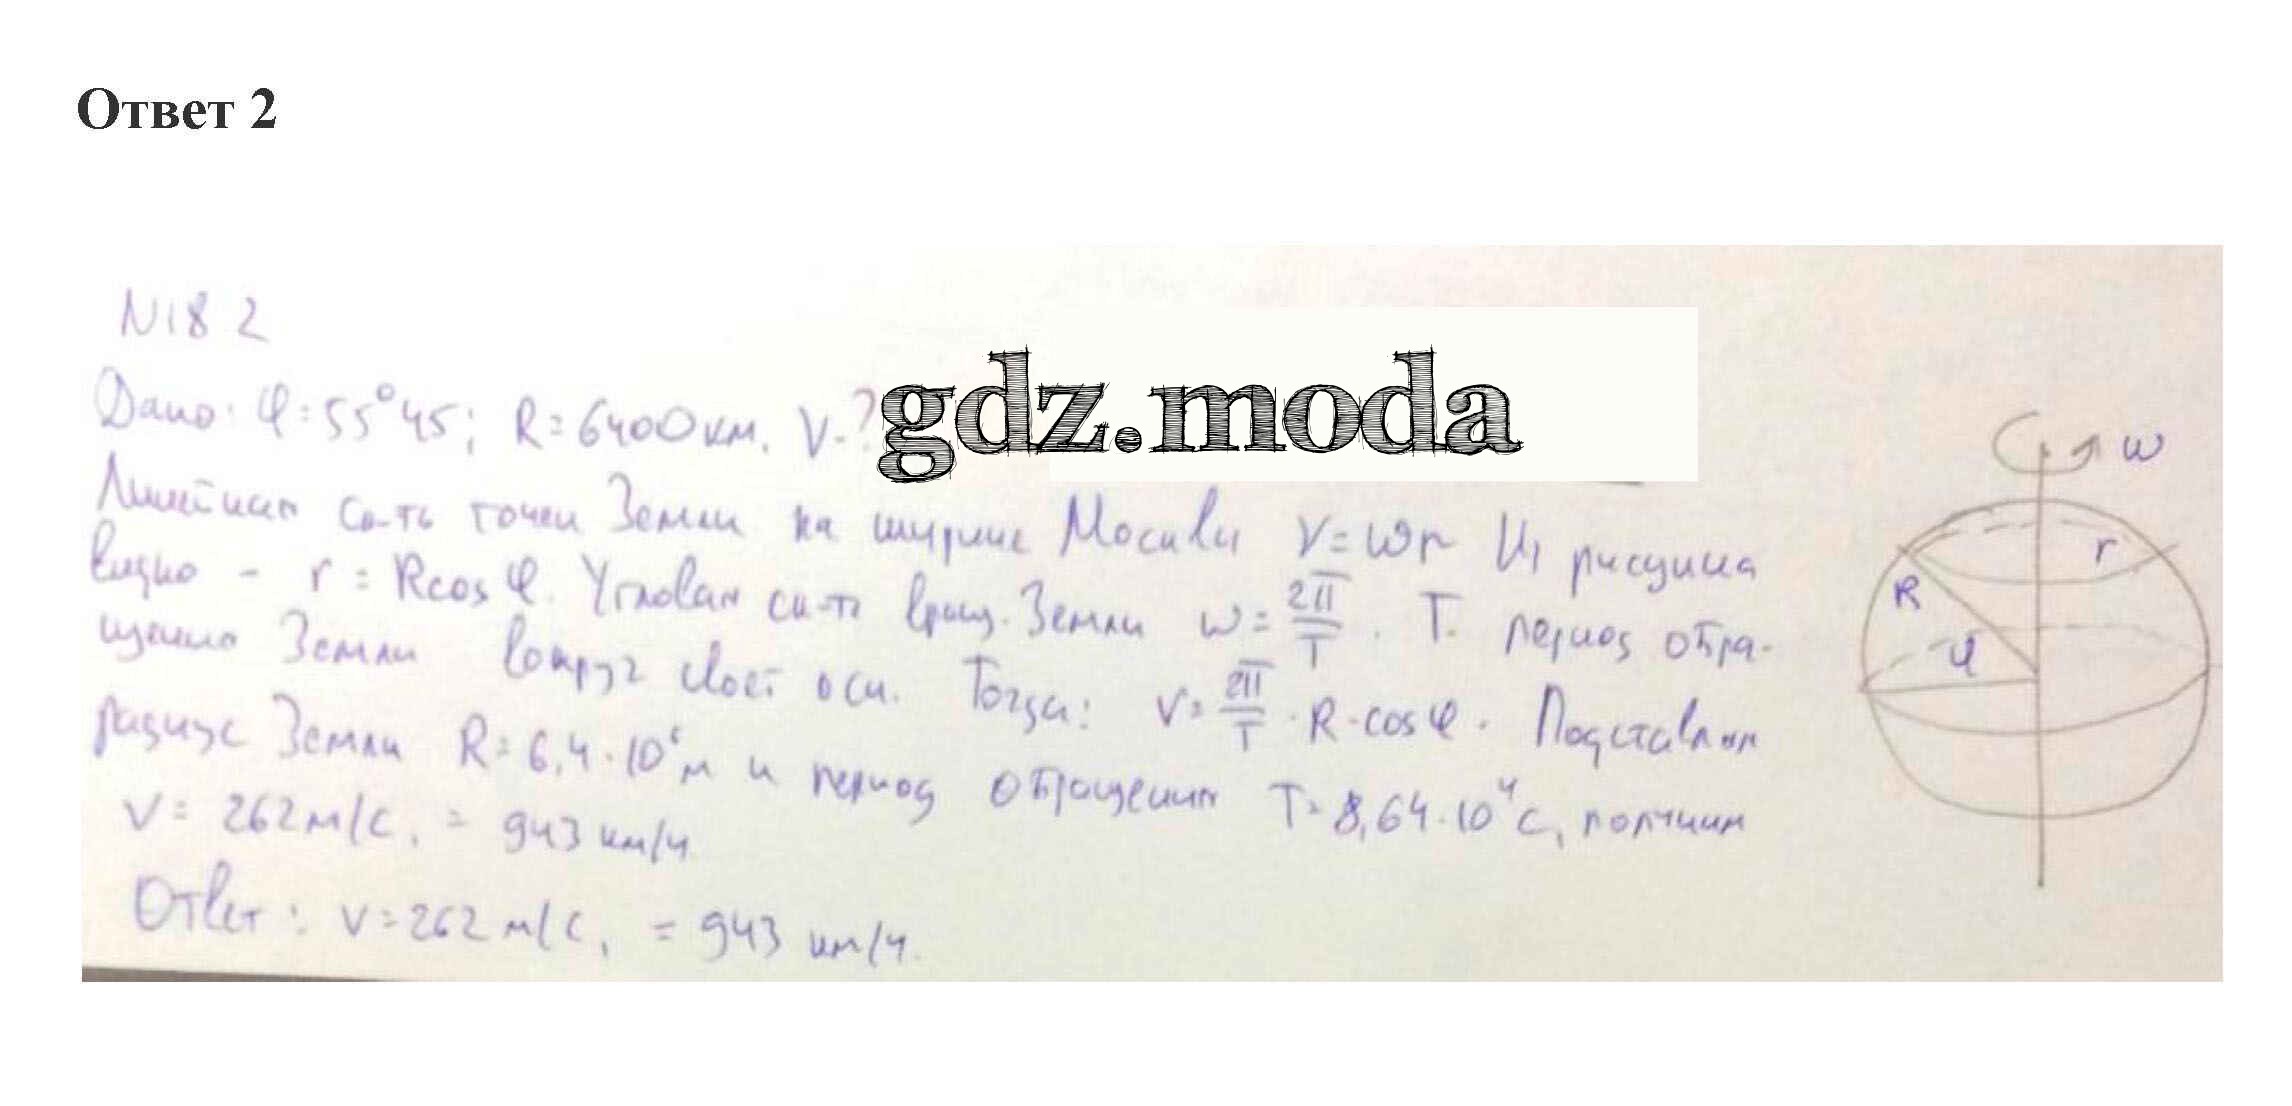 Ответ 2
N18 2
Дано: φ=55°45; R=6400км. V-?
gdz.moda
Линейная ск-ть точки Земли на широте Москвы V=ωr Из рисунка
видно - r = Rcosφ. Угловая ск-ть вращ. Земли ω= 2π/T . T. период обра-
щения Земли вокруг своей оси. Тогда: V= 2π/T · R·cosφ. Подставляя
радиус Земли R=6,4·10⁶м и период обращения T=8,64·10⁴с, получим
V= 262м/с, = 943 км/ч
Ответ: V=262м/с, = 943 км/ч.
ω
r
R
φ